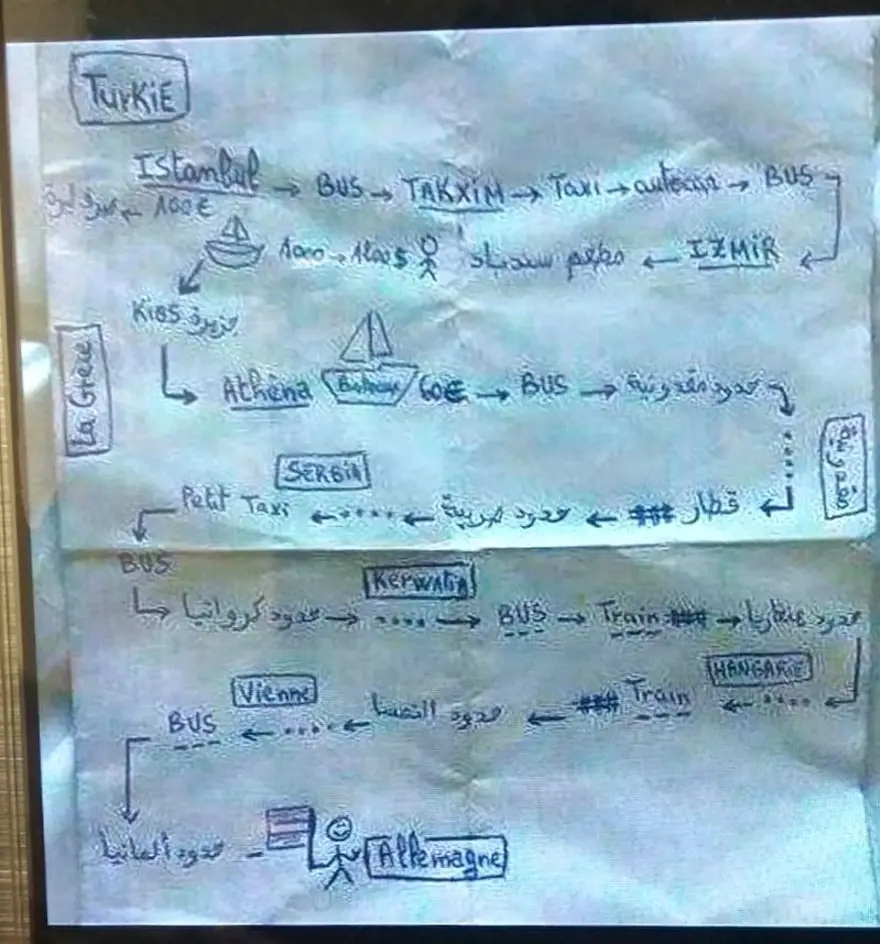 TurKiE
IStambul → BUS → TAKXIM → Taxi → autocar → BUS
100€ ←
IZMIR ← مطعم سندباد 1000 → 1200$
Kios جزيرة
La Grece
Athèna 60€ → BUS → حدود مقدونية
مقدونية
SERBIA
قطار ← حدود صربية ← .... ← Petit Taxi
BUS
KerwAtia
حدود كرواتيا → .... → BUS → Train → حدود هنغاريا
HANGARiE
.... ← Train ← حدود النمسا ← .... ← BUS
Vienne
حدود ألمانيا
Allemagne